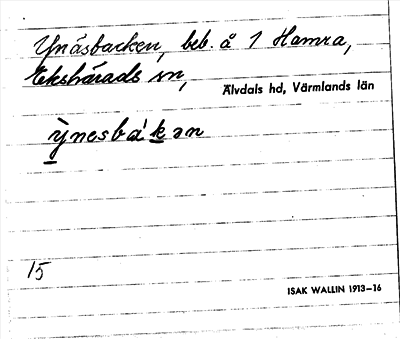 Ynäsbacken, beb. å 1 Hamra,
Ekshärads sn,
Älvdals hd, Värmlands län
ỳnesbákən
15
ISAK WALLIN 1913–16